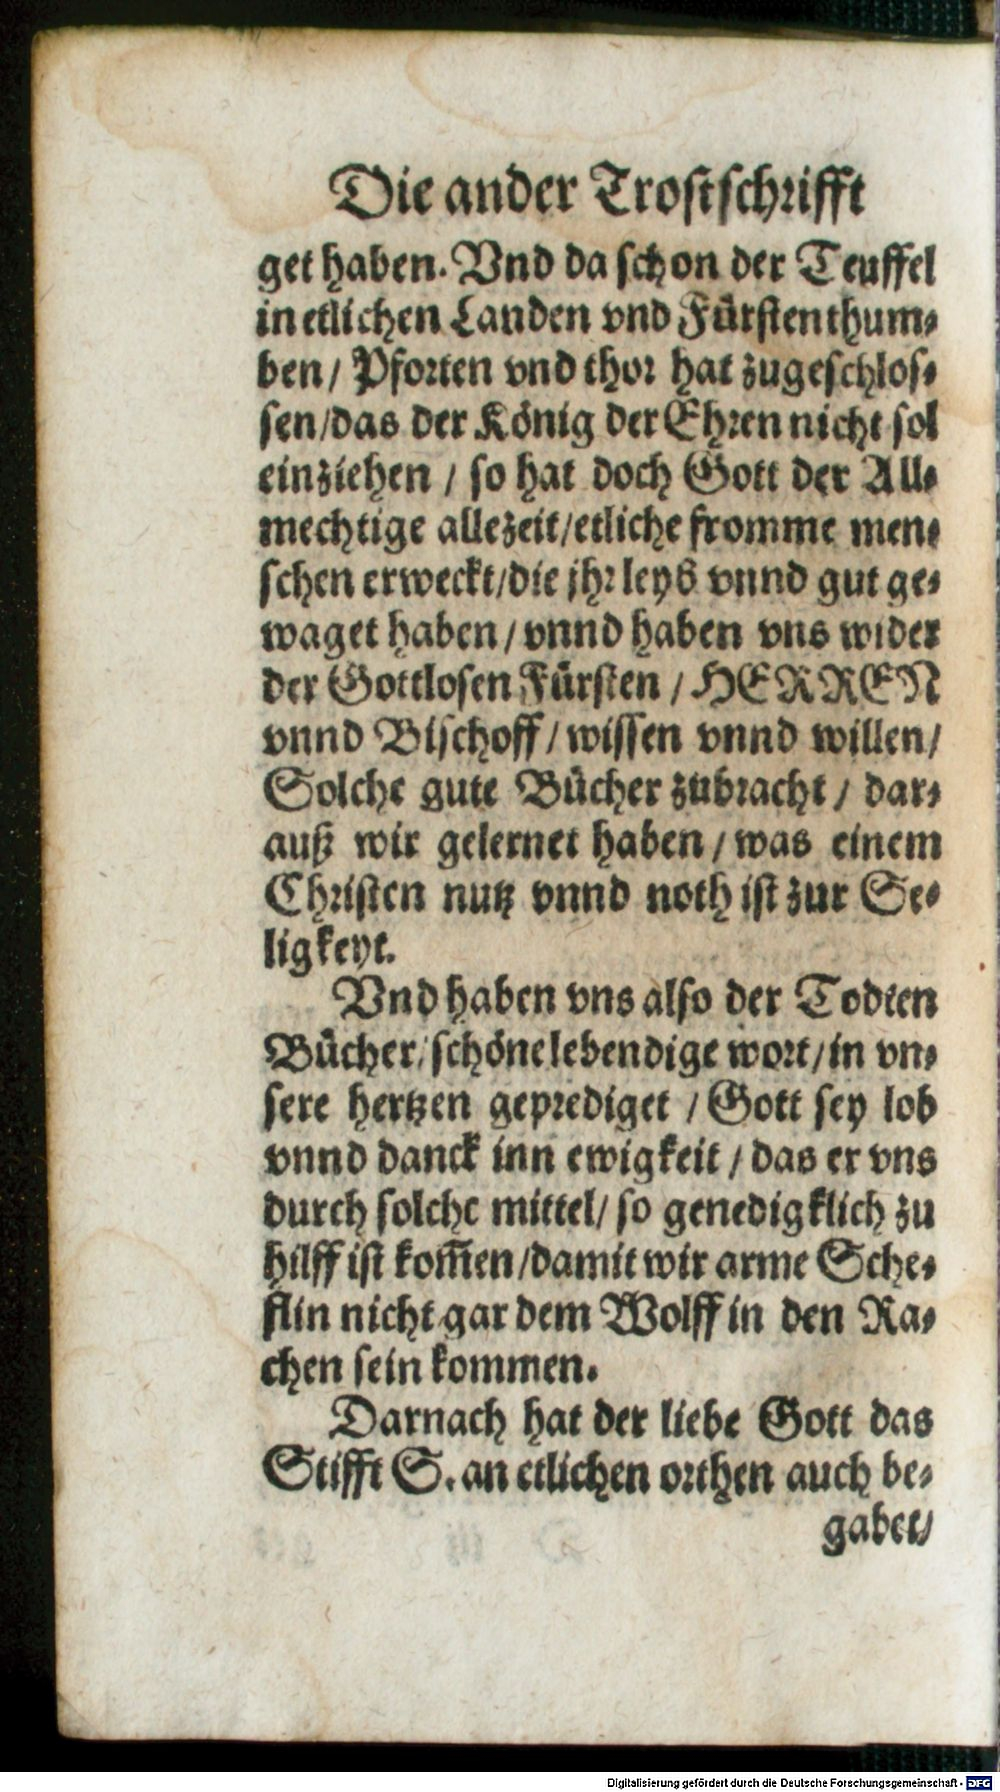 Die ander Trostschrifft
get haben. Vnd da schon der Teuffel
in etlichen Landen vnd Fürstenthum⸗
ben / Pforten vnd thor hat zugeschlos⸗
sen / das der König der Ehren nicht sol
einziehen / so hat doch Gott der All⸗
mechtige allezeit / etliche fromme men⸗
schen erweckt / die jhr leyb vnnd gut ge⸗
waget haben / vnnd haben vns wider
der Gottlosen Fürsten / HERREN
vnnd Bischoff / wissen vnnd willen /
Solche gute Bücher zubracht / dar⸗
auß wir gelernet haben / was einem
Christen nutz vnnd noth ist zur Se⸗
ligkeyt.
Vnd haben vns also der Todten
Bücher / schöne lebendige wort / in vn⸗
sere hertzen geprediget / Gott sey lob
vnnd danck inn ewigkeit / das er vns
durch solche mittel / so genedigklich zu
hilff ist kom̃en / damit wir arme Sche⸗
flin nicht gar dem Wolff in den Ra⸗
chen sein kommen.
Darnach hat der liebe Gott das
Stifft S. an etlichen orthen auch be⸗
gabet /
Digitalisierung gefördert durch die Deutsche Forschungsgemeinschaft - DFG